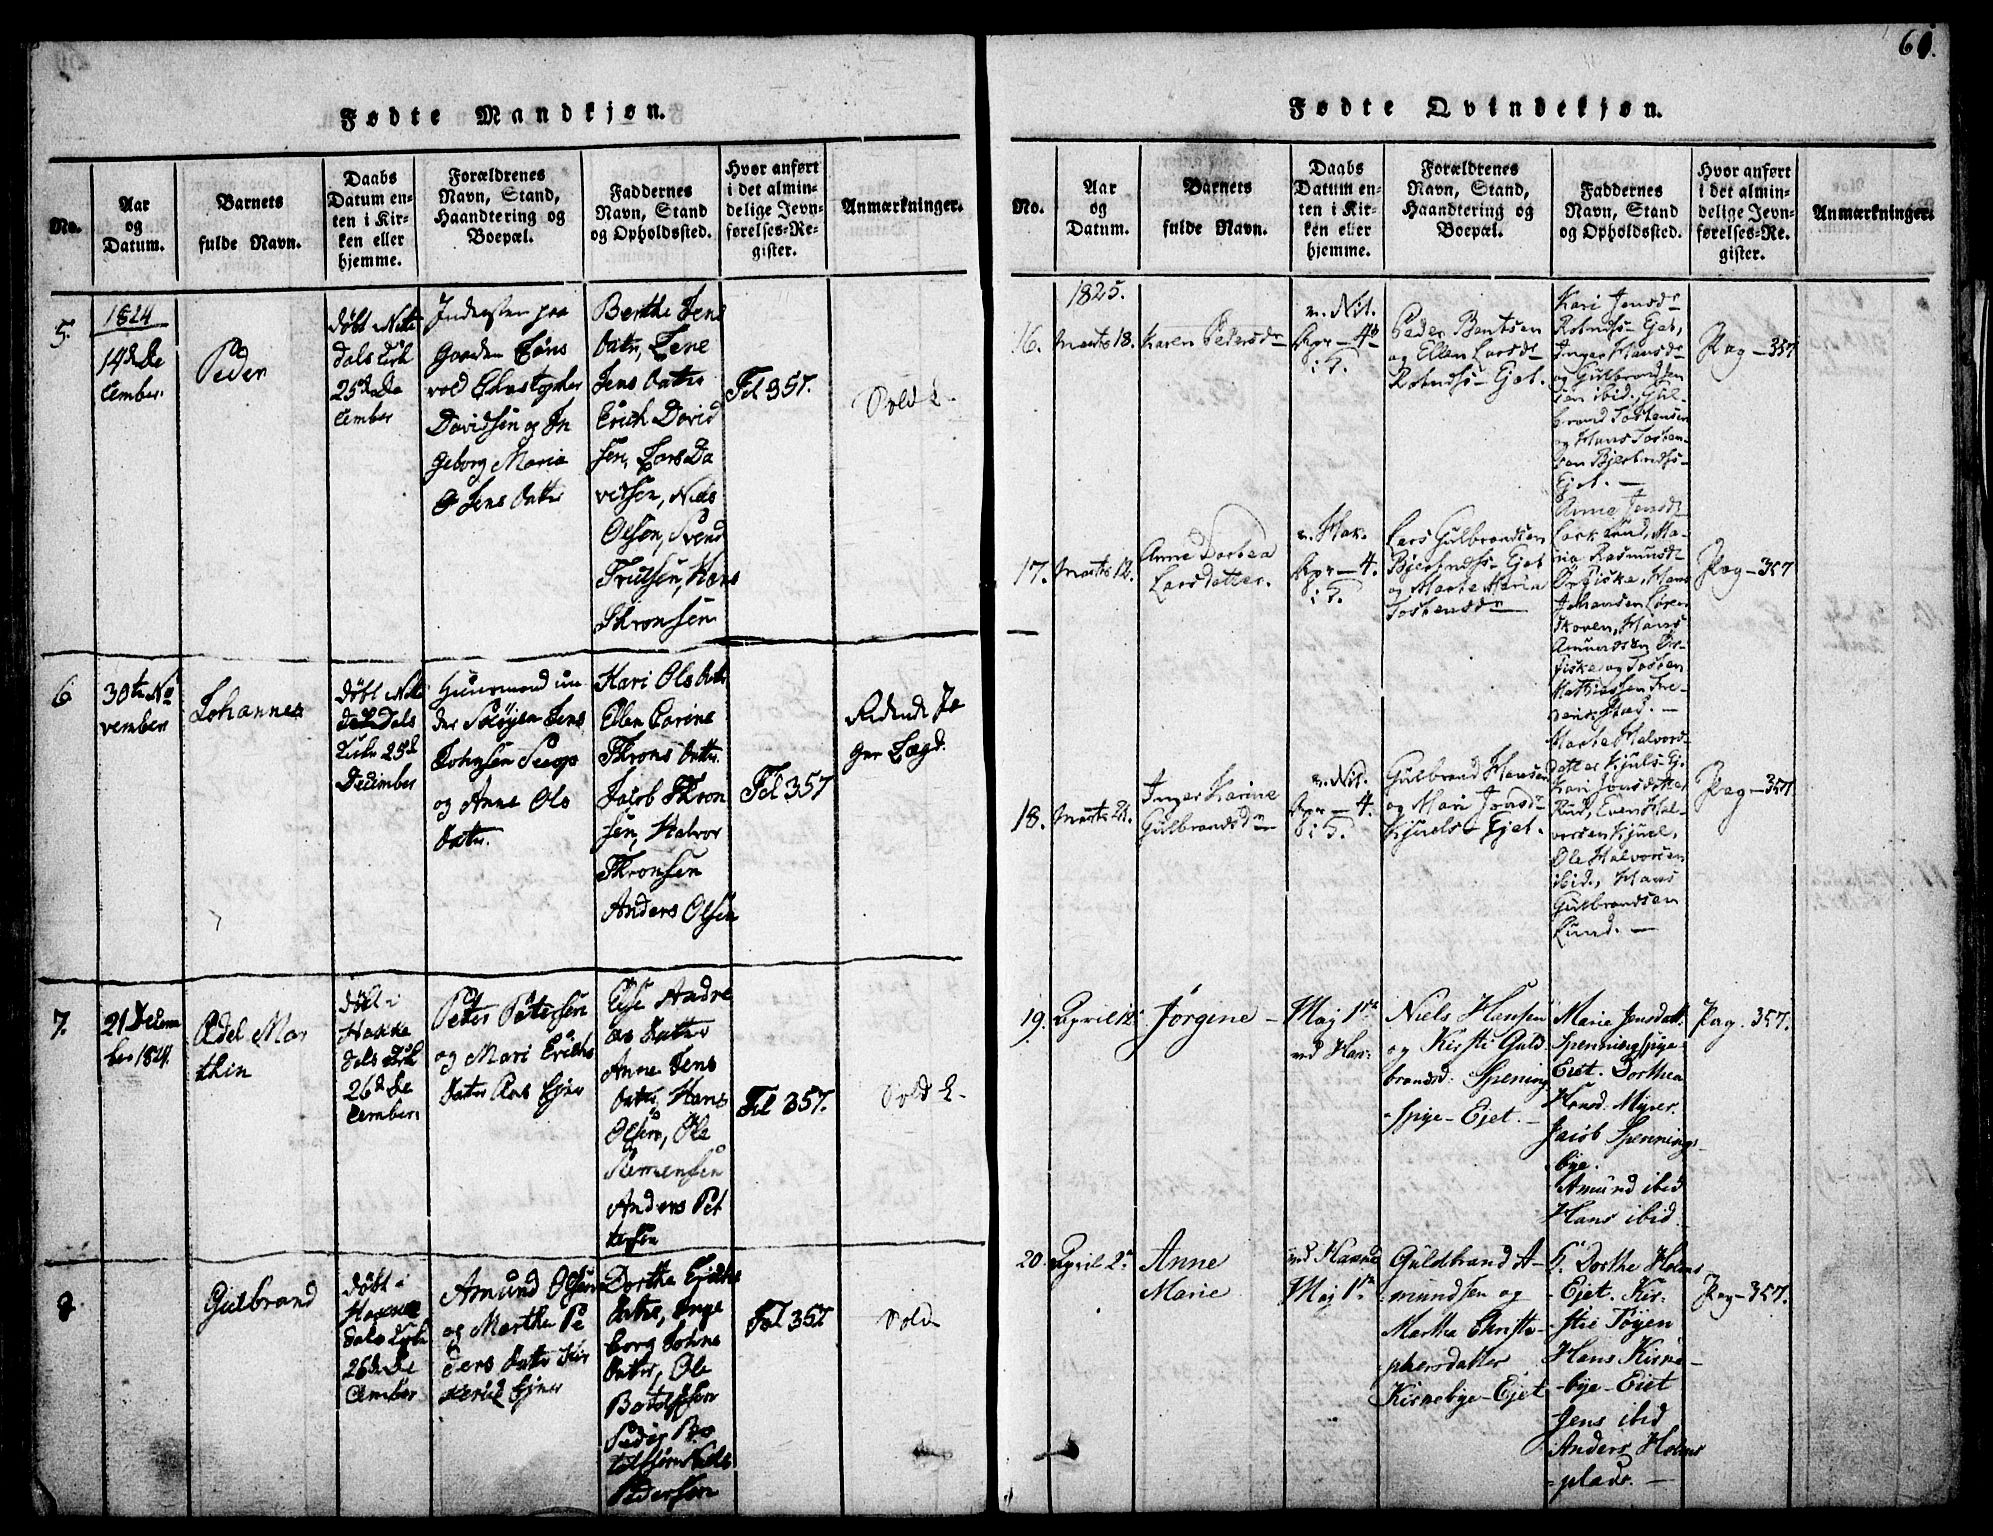 60.
Fødte Mandkjøn.
No.
Aar
og
Datum.
Barnets
fulde Navn.
Daabs
Datum en-
ten i Kir-
ken eller
hjemme.
Forældrenes
Navn, Stand,
Haandtering og
Boepæl.
Faddernes
Navn, Stand
og Opholdssted.
Hvor anført
i det almin-
delige Jevn-
førelses-Re-
gister.
Anmærkninger.
5.
1824
14de De
cember.
Peder
døbt Nitte
dals Kirk
25de De
cember
Inderster paa
Gaarden
vold Christopher
Davidsen og In
geborg Maria
Jens datter
Berthe Jens
datter, Lene
Jens datter
Erich David
sen, Lars Da
vidsen, Niels
Olsen, Svend
Truelsen, Hans
Thronsen
Fol 357.
6
30te No
vember
Johannes
døbt Nitte
dals
Kirke 25de
December
Huusmand un
der Jens
Johnsen
og Anne Ols
datter.
Kari Ols datter
Ellen Carine
Throns datter
Jacob Thron
sen, Halvor
Thronsen
Anders Olsen
Fol 357
Ridende Jæ
ger Lægd.
7.
21 Decem
ber 1824.
Edel Mar
thin
døbt i
Hakke
dals Kirk
26de De
cember.
Peter Petersen
og Mari Erichs
datter Ejer
Else Andre
as datter
Anne Jens
datter, Hans
Olsen, Ole
Siemensen
Anders Pet
tersen
Fol 357.
8
Gulbrand
døbt i
Hakke
dals Kirk
26de De
cember
Amund Olsen
og Marthe Pe
ders datter
Ejer
Dorthe Erichs
datter, Inge
borg Johns
datter, Ole
Botolfsen
Peder Bo
tolfsen Niels
Pedersen
Fol 357
Fødte Qvindekjøn.
No.
Aar
og
Datum.
Barnets
fulde Navn.
Daabs
Datum en-
ten i Kir-
ken eller
hjemme.
Forældrenes
Navn, Stand,
Haandtering og
Boepæl.
Faddernes
Navn, Stand
og Opholdssted.
Hvor anført
i det almin-
delige Jevn-
førelses-Re-
gister.
Anmærkninger.
1825.
16.
Marts 18.
Karen Pedersdr
v. Nit.
Apr - 4de
Peder Bentsen
og Ellen Larsdr
Rotnæs-Ejet.
Kari Jensdr
Rotnæs-Ejet,
Inger Hansdr
og Gulbrand
ibid. Gul-
brand Tostensen
og Hans Tosten-
sen Bjertnæs-
Ejet. -
Pag - 357
17.
Marts 12.
Anne Dorthea
Larsdatter.
v. Hak.
Apr - 4.
Lars Gulbrandsen
Bjertnæs-Ejet
og Marte Maria
Tostensdr
Anne Jensdr
Lund, Ma-
ria Rasmusdr
Ørfiske, Hans
Johansen Sören
skoven, Hans
Amundsen Ør-
fiske og Tosten
Mathiassen Fre-
derikstad. -
Pag - 357
18.
Marts 21.
Inger Karine
Gulbrandsdr
v. Nit.
Apr - 4.
Gulbrand Hansen
og Mari Jonsdr
Kjuuls-Ejet.
Marte Halvors-
datter Kjuls-E.
Kari Jonsdatter
Rud, Even Hal-
vorsen Kjuul,
Ole Halvorsen
ibid., Hans
Gulbrandsen
Lund. -
Pag - 357
19.
April 12.
Jørgine -
Maj 1ste
ved Hak:
Niels Hansen
og Kirsti Guld
brandsd: Spening
-spye-Ejet. -
Marie Jensdatt.
Spenningspye-
Eiet. Dorthea
Hansd. Myrer.
Jacob Spennings-
bye.
Amund ibid
Hans ibid.
Pag. 357.
20.
April 2.
Anne
Marie
ved Hakke
Maj 1ste
Guldbrand A-
mundsen og
Martha Christo-
phersdatter
Kirkebye-Ejet
Dorthe Holms
-Ejet. Kir-
-stie Tøyen
Hans Kirke-
-bye-Eiet
Jens ibid
Anders Holms
-plads. -
Pag - 357.